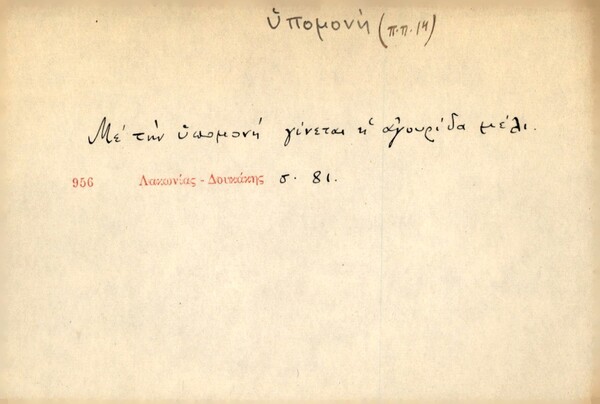 ὑπομονή (π.π. 14)
Μὲ τὴν ὑπομονή γίνεται κ' ἀγουρίδα μέλι.
956 Λακωνίας - Δουκάκης σ. 81.